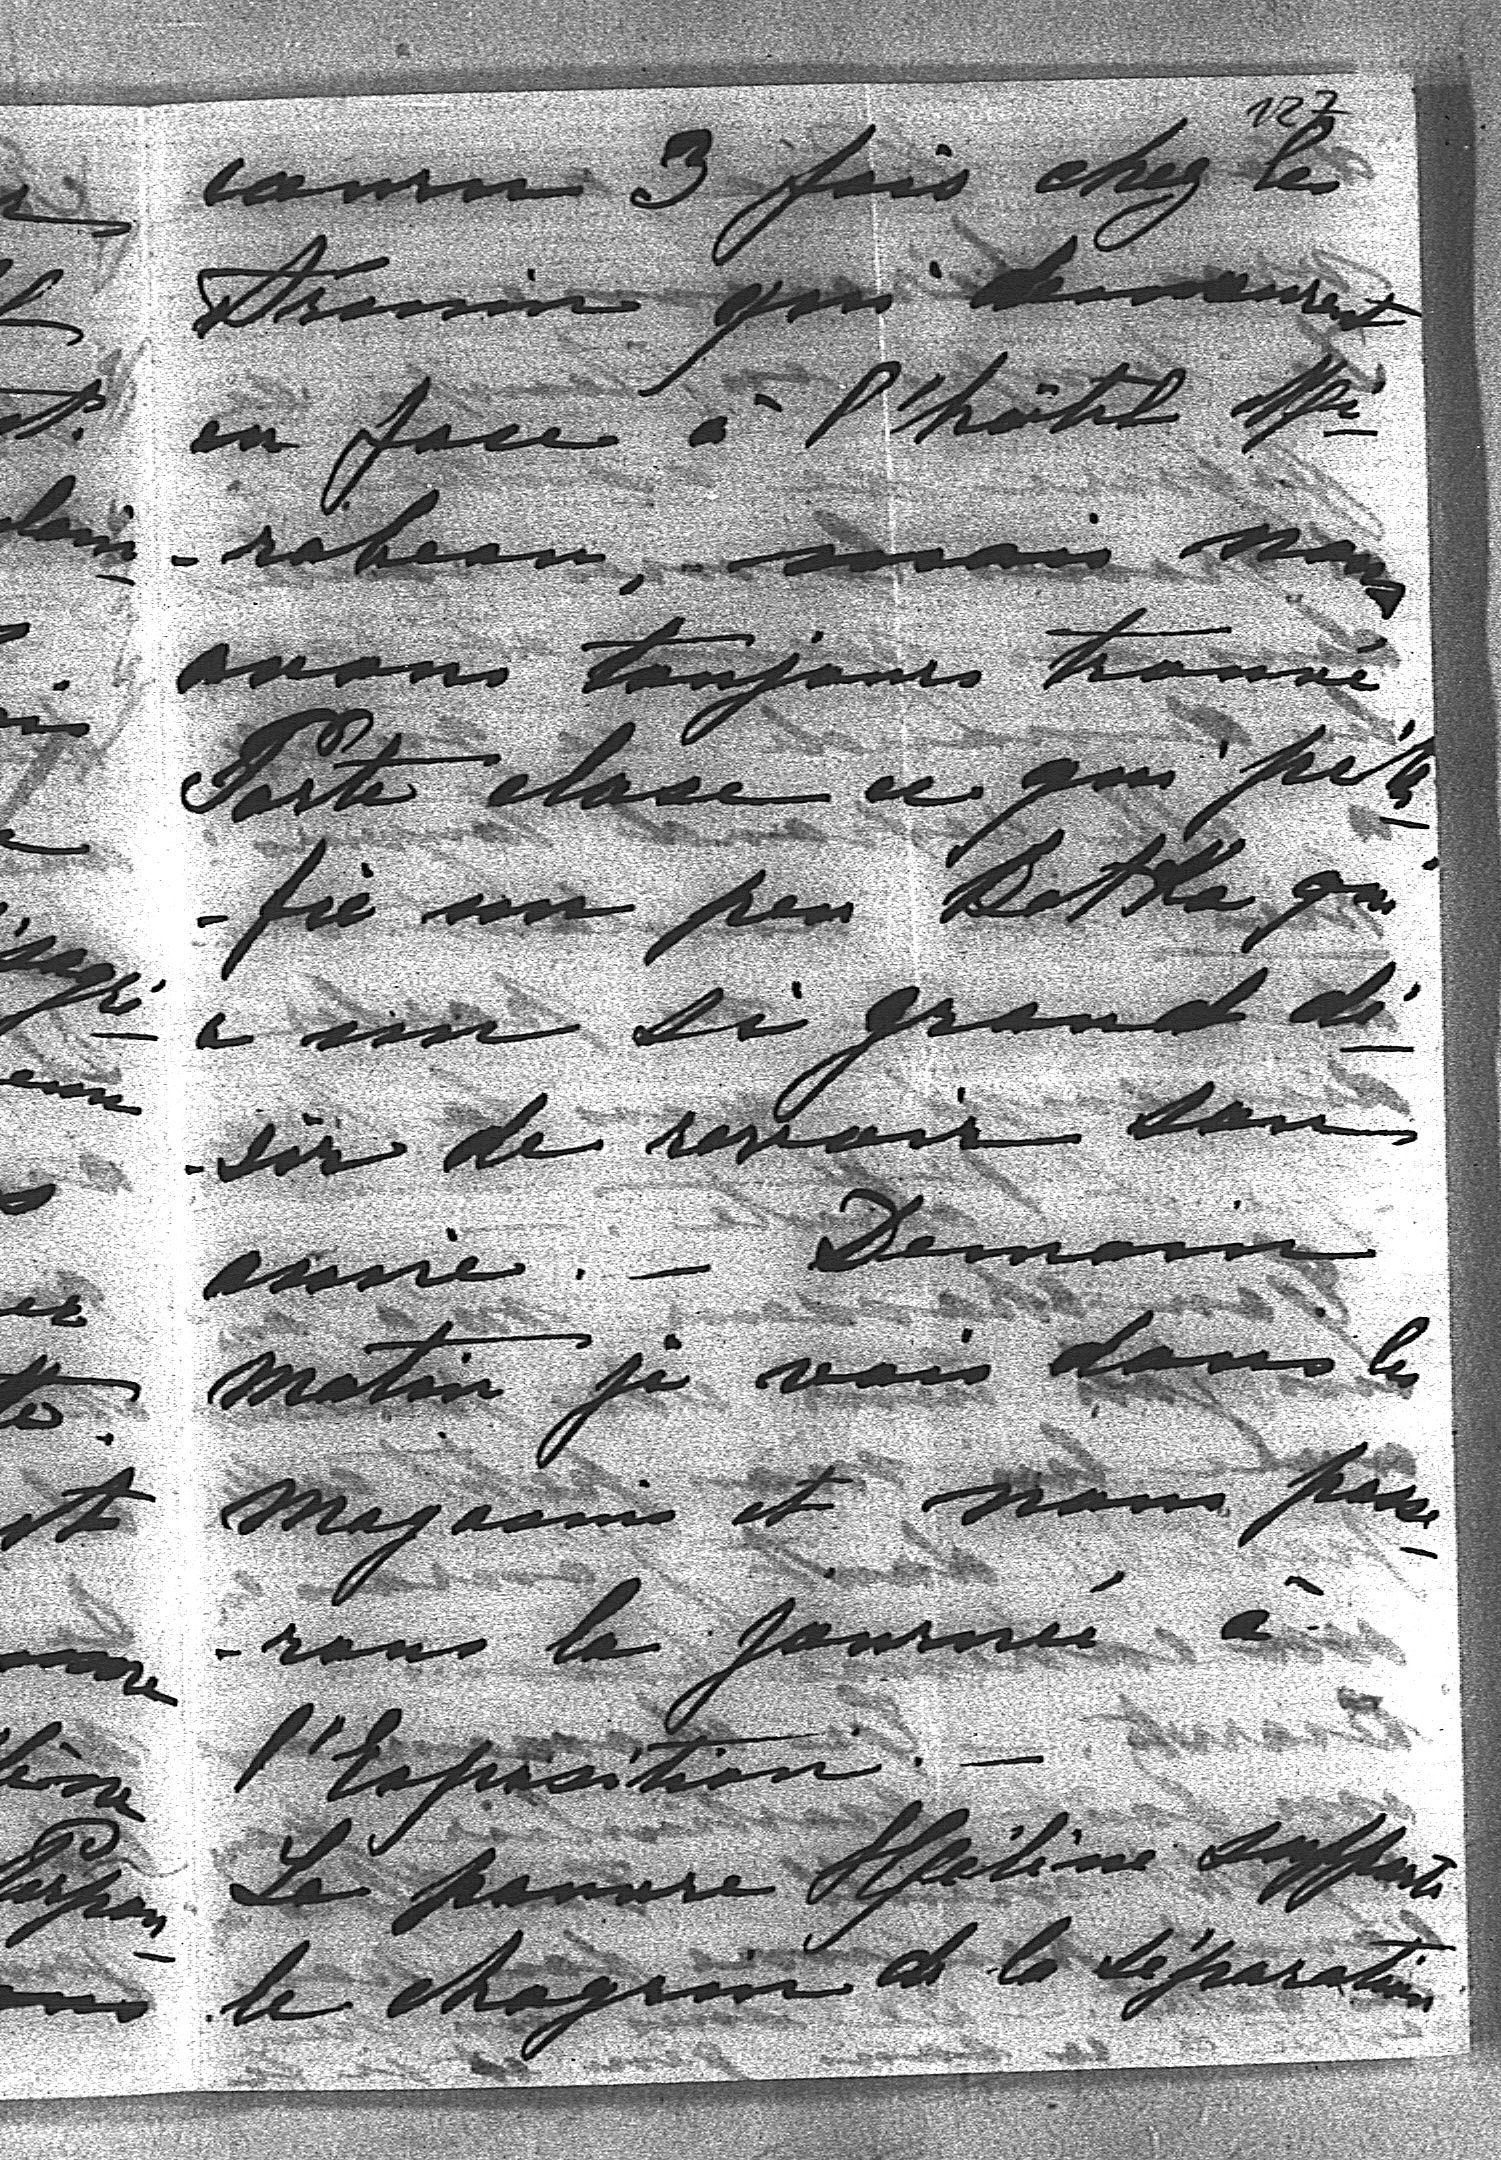 127
couru 3 fois chez les
qui demeurent
en face à l'hôtel Mi-
-rabeau, mais nous
avons toujours trouvé
Porte close ce qui pétri-
-fié un peu Betka qui
a un si grand dé-
-sir de revoir son
amie. — Demain
matin je vais dans les
magasins et nous passe-
-rons la journée à
l'Exposition. —
La pauvre Hélène supporte
le chagrin de la séparation